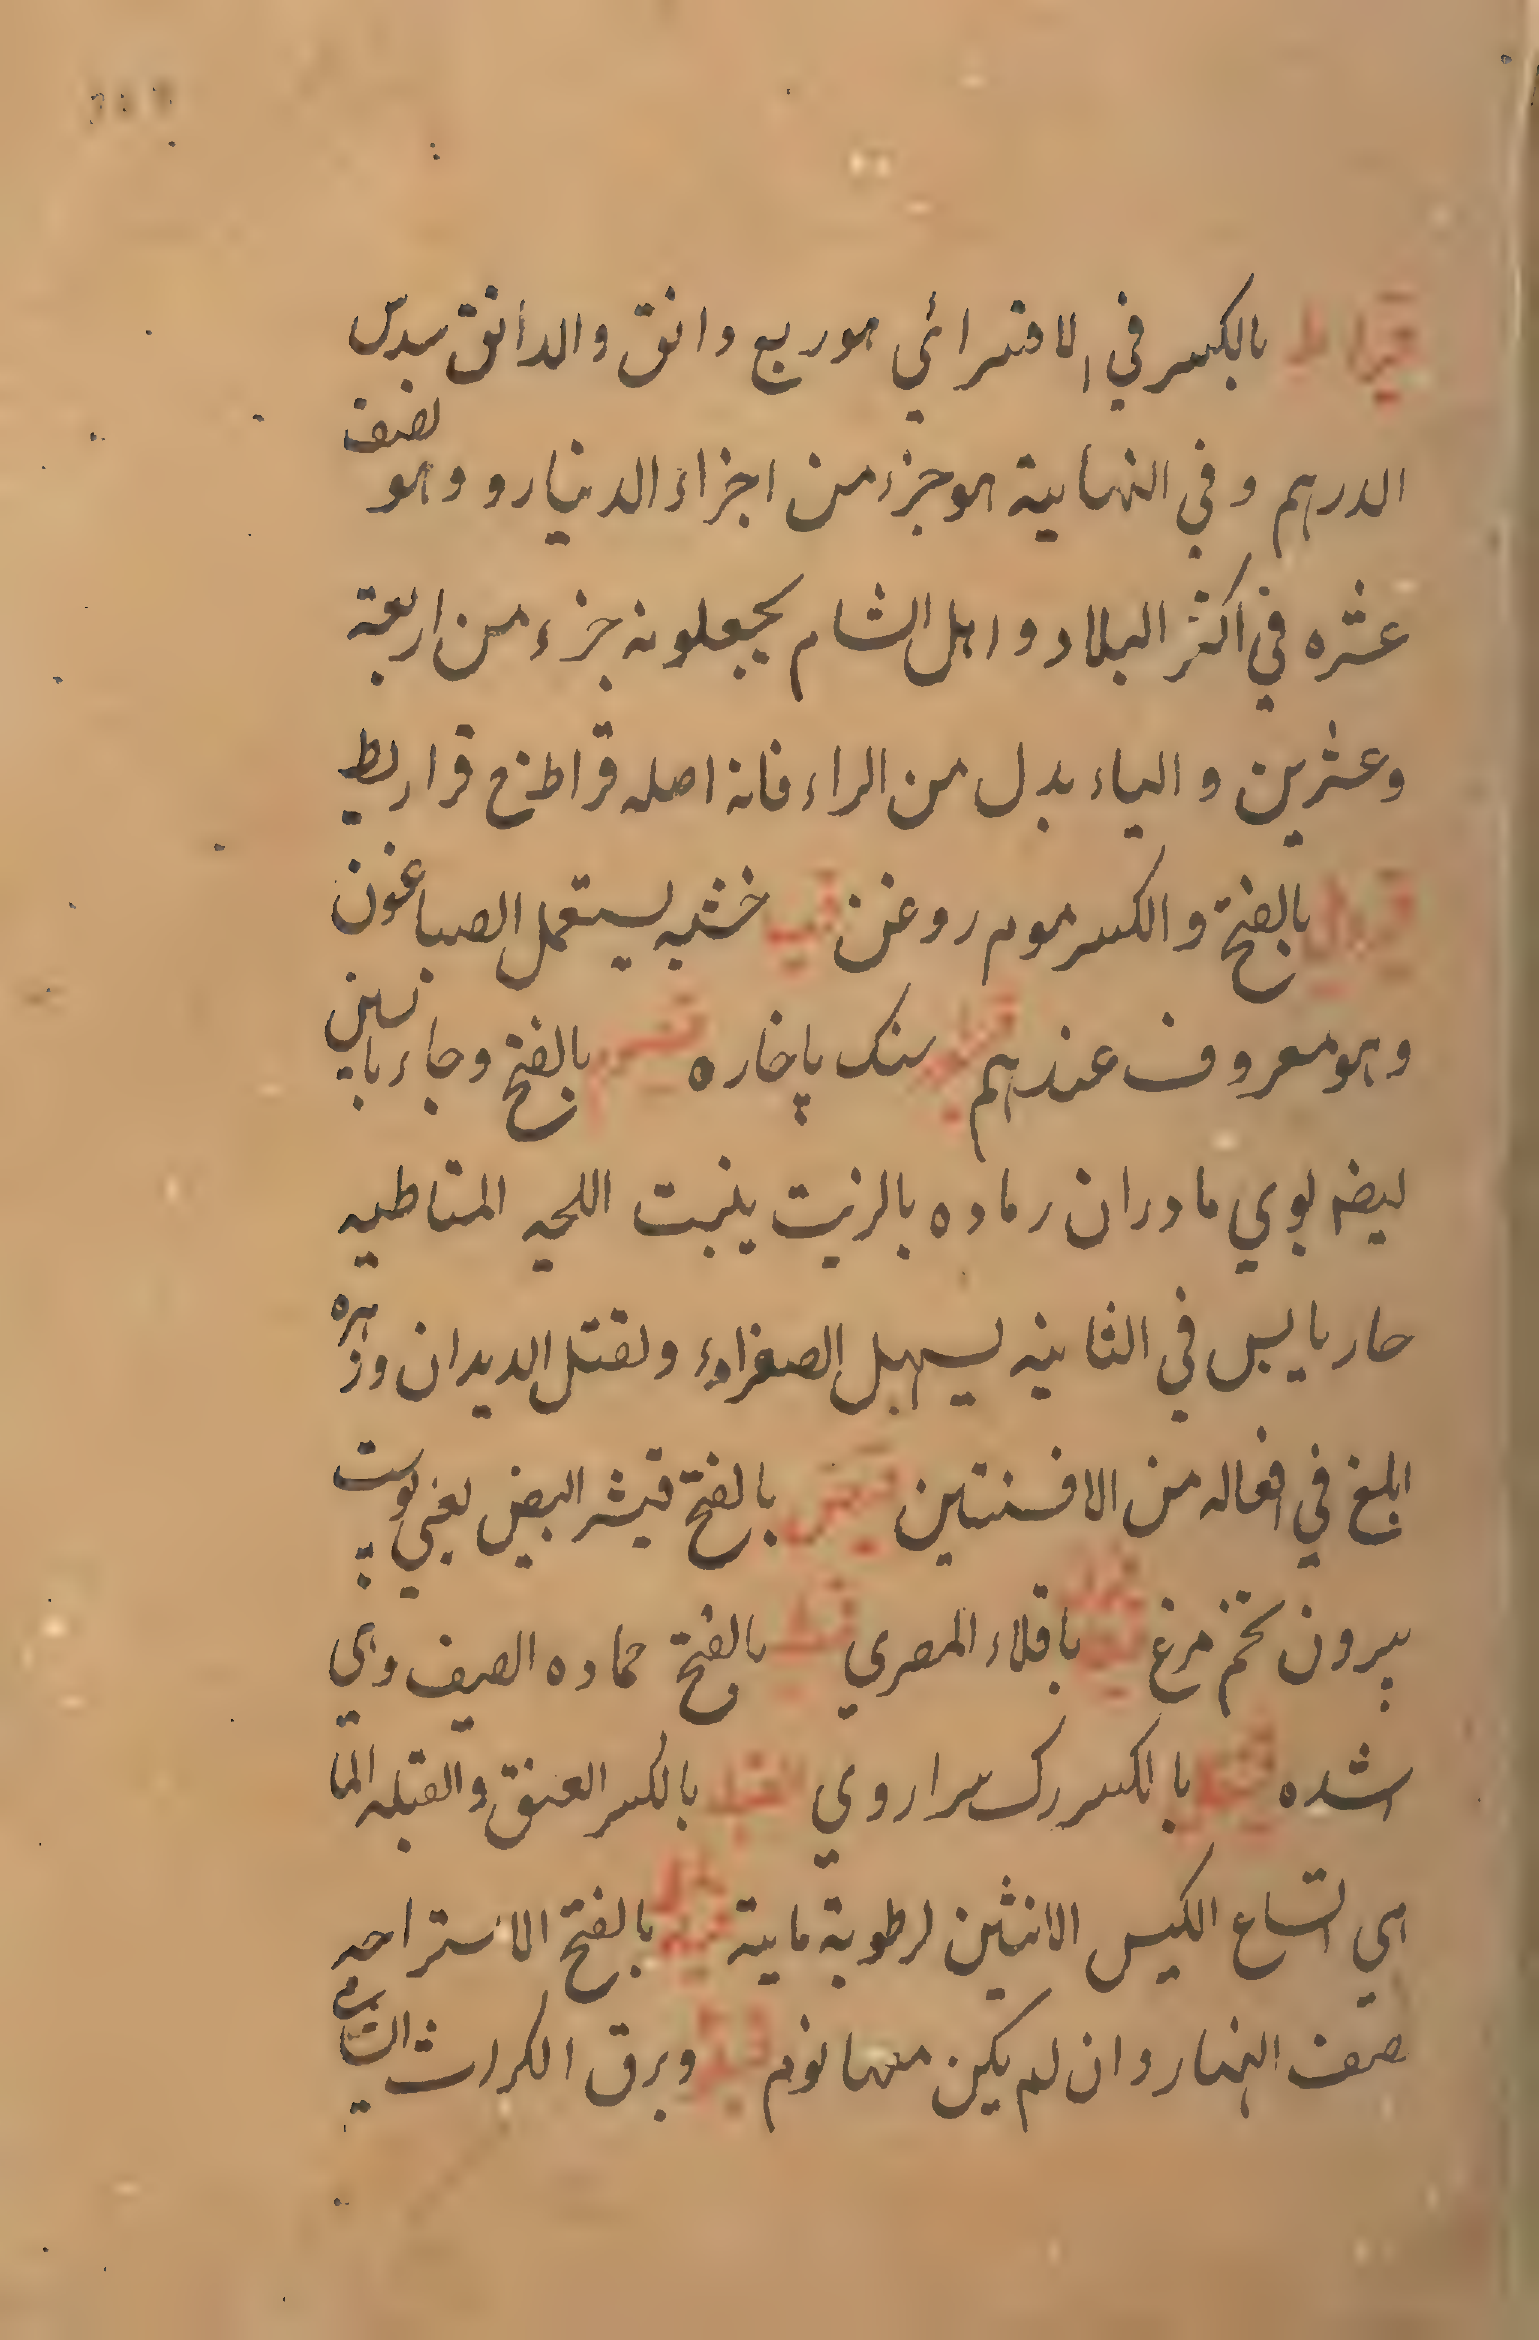 قيراط بالكسر في الاقسرائي هو ربع دانق والدانق سدس
الدرهم وفي النهاية هو جزء من اجزاء الدنيار و وهو نصف
عشره في اكثر البلاد و اهل الشام يجعلونه جزء من اربعة
وعشرين و الياء بدل من الراء فانه اصله قراط ج قراريط
بالفتح و الكسر موم روغن خشبه يستعمل الصباغون
وهو معروف عندهم سنك پاخاره قيسوم بالفتح وجاء بالسين
ايضا بوي مادران رماده بالزيت ينبت اللحيه المتباطيه
حار يابس في الثانيه يسهل الصفراء ويقتل الديدان وزهره
ابلغ في افعاله من الافسنتين قيض بالفتح قيشر البيض يعني پوست
بيرون تخم مرغ باقلاء المصري قيظ بالفتح حماده الصيف وهي
شده بالكسر رك سراروي القيله بالكسر العنق والقيله الما
هي اتساع الكيس الانثيين لرطوبة مايية بالفتح الاستراحه
نصف النهار وان لم يكن معها نوم وبرق الكراث الشامي